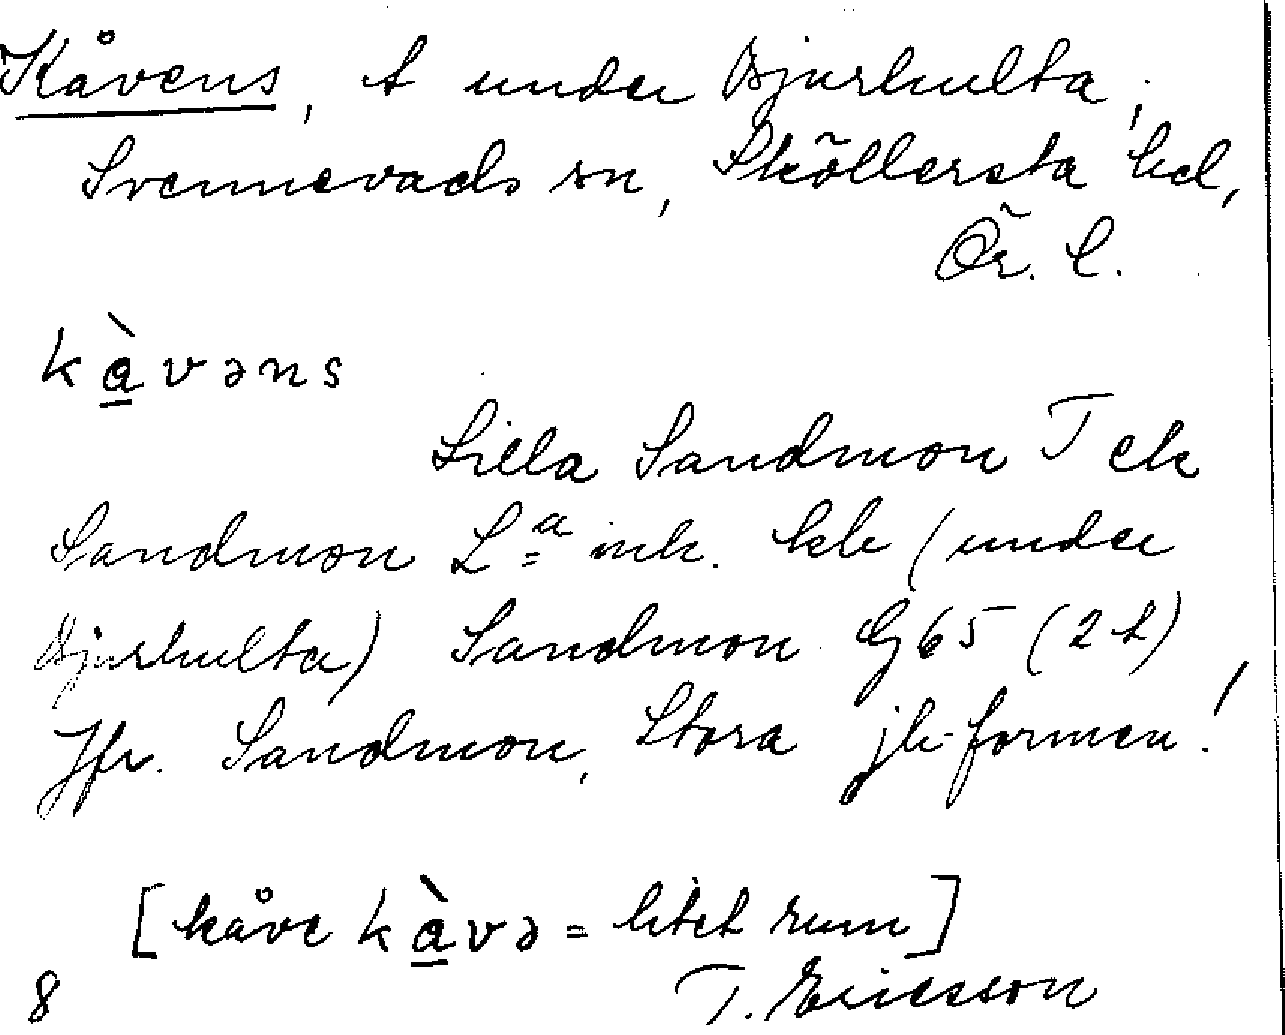 Kåvens, t under Bjurhulta,
Svennevads sn, Sköllersta hd,
Ör. l.
kàvəns
Lilla Sandmon T ek
Sandmon La mk. kb (under
Bjurhulta) Sandmon G65 (2 t)
Jfr. Sandmon, Stora jb-formen!
[kåve kàvə = litet rum]
8 T. Ericsson